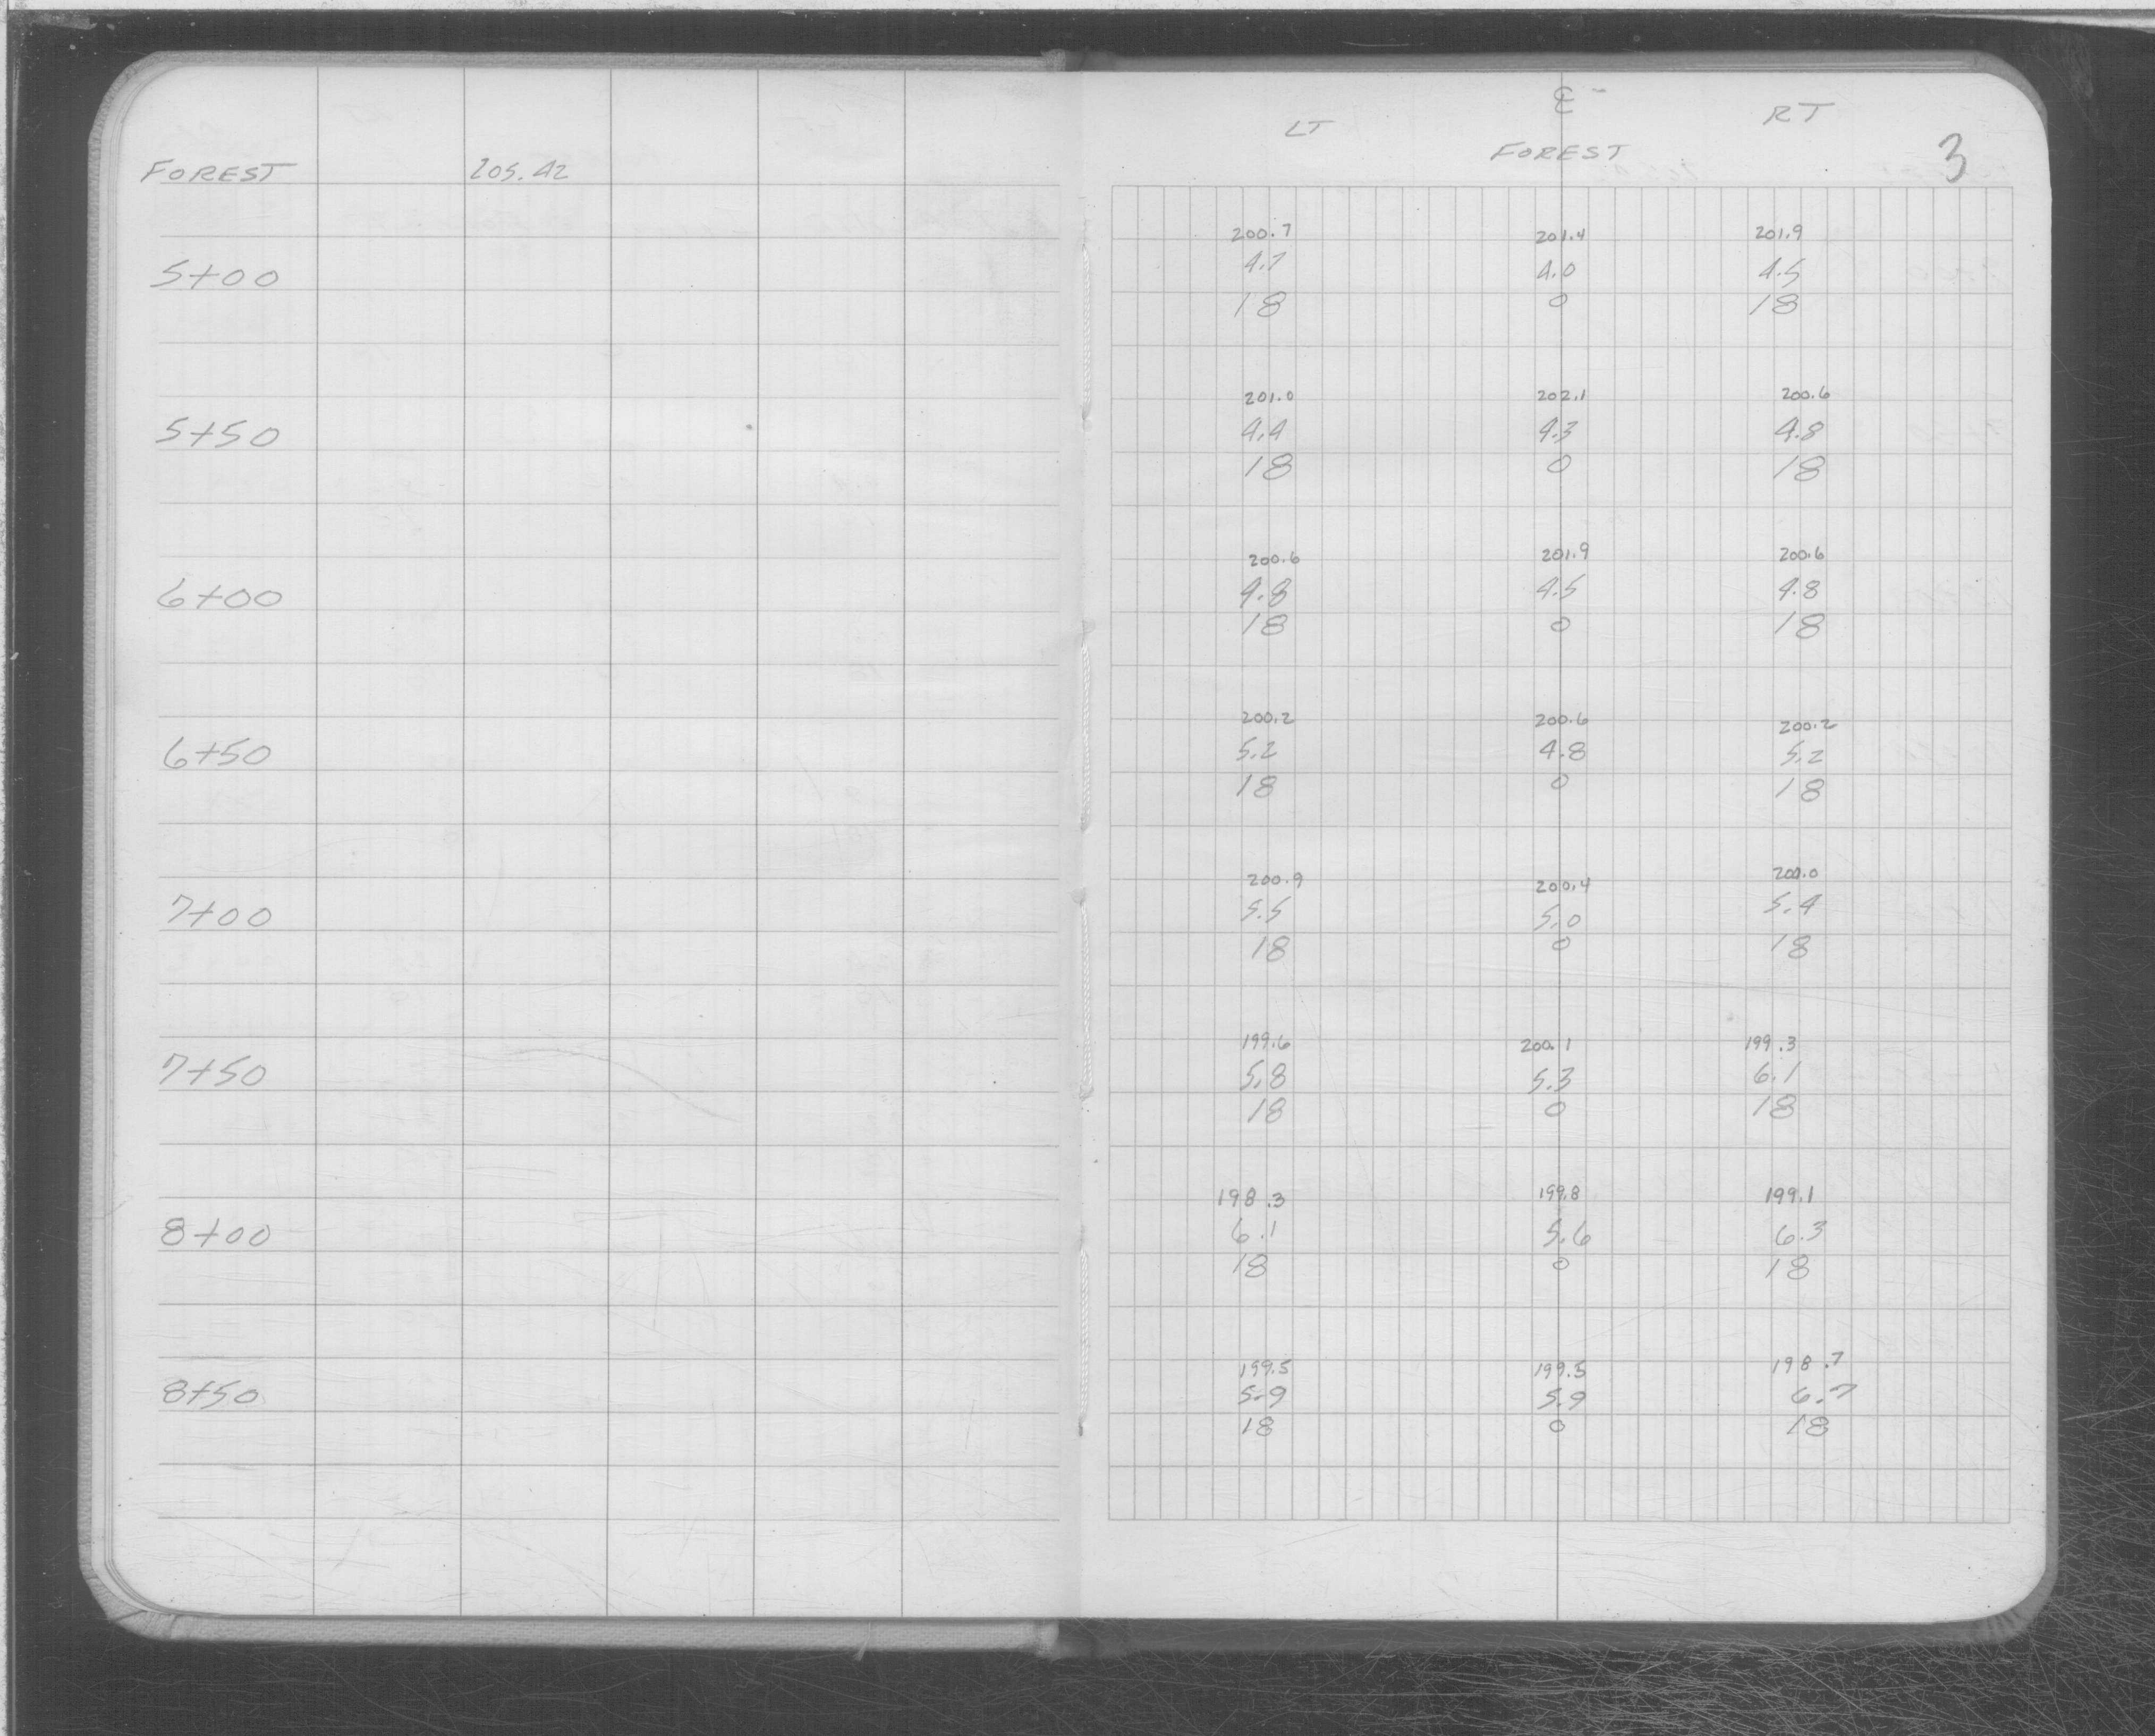 FOREST 205.42
5+00
5+50
6+00
6+50
7+00
7+50
8+00
8+50
LT ℄ RT
FOREST
3
200.7 201.4 201.9
4.7 4.0 4.5
18 0 18
201.0 202.1 200.6
4.4 4.3 4.8
18 0 18
200.6 201.9 200.6
4.8 4.5 4.8
18 0 18
200.2 200.6 200.2
5.2 4.8 5.2
18 0 18
200.9 200.4 200.0
5.5 5.0 5.4
18 0 18
199.6 200.1 199.3
5.8 5.3 6.1
18 0 18
198.3 199.8 199.1
6.1 5.6 6.3
18 0 18
199.5 199.5 198.7
5.9 5.9 6.7
18 0 18